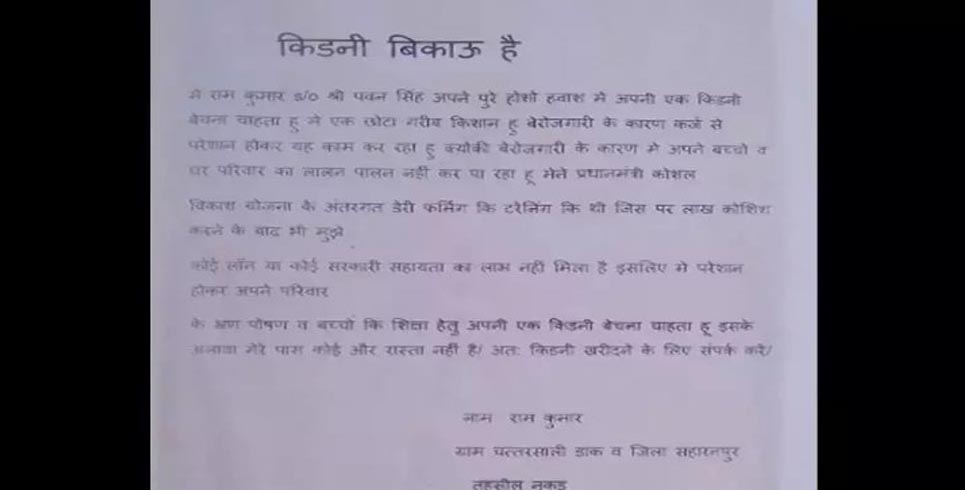 किडनी बिकाऊ है
मे राम कुमार s/o श्री पवन सिंह अपने पुरे होशो हवाश मे अपनी एक किडनी
बेचना चाहता हू मे एक छोटा गरीब किशान हू बेरोजगारी के कारण कर्ज से
परेशान होकर यह काम कर रहा हू क्योकी बेरोजगारी के कारण मे अपने बच्चो व
घर परिवार का लालन पालन नहीं कर पा रहा हू मेने प्रधानमंत्री कोशल
विकाश योजना के अंतरगत डेरी फर्मिंग कि टरेनिंग कि थी जिस पर लाख कोशिश
करने के बाद भी मुझे
कोई लॉन या कोई सरकारी सहायता का लाभ नही मिला है इसलिए मे परेशान
होकर अपने परिवार
के भ्रण पोषण व बच्चो कि शिक्षा हेतु अपनी एक किडनी बेचना चाहता हू इसके
अलावा मेरे पास कोई और रास्ता नहीं है/ अतः किडनी खरीदने के लिए संपर्क करे/
नाम राम कुमार
ग्राम चत्तरसाली डाक व जिला सहारनपुर
तहसील नकुड